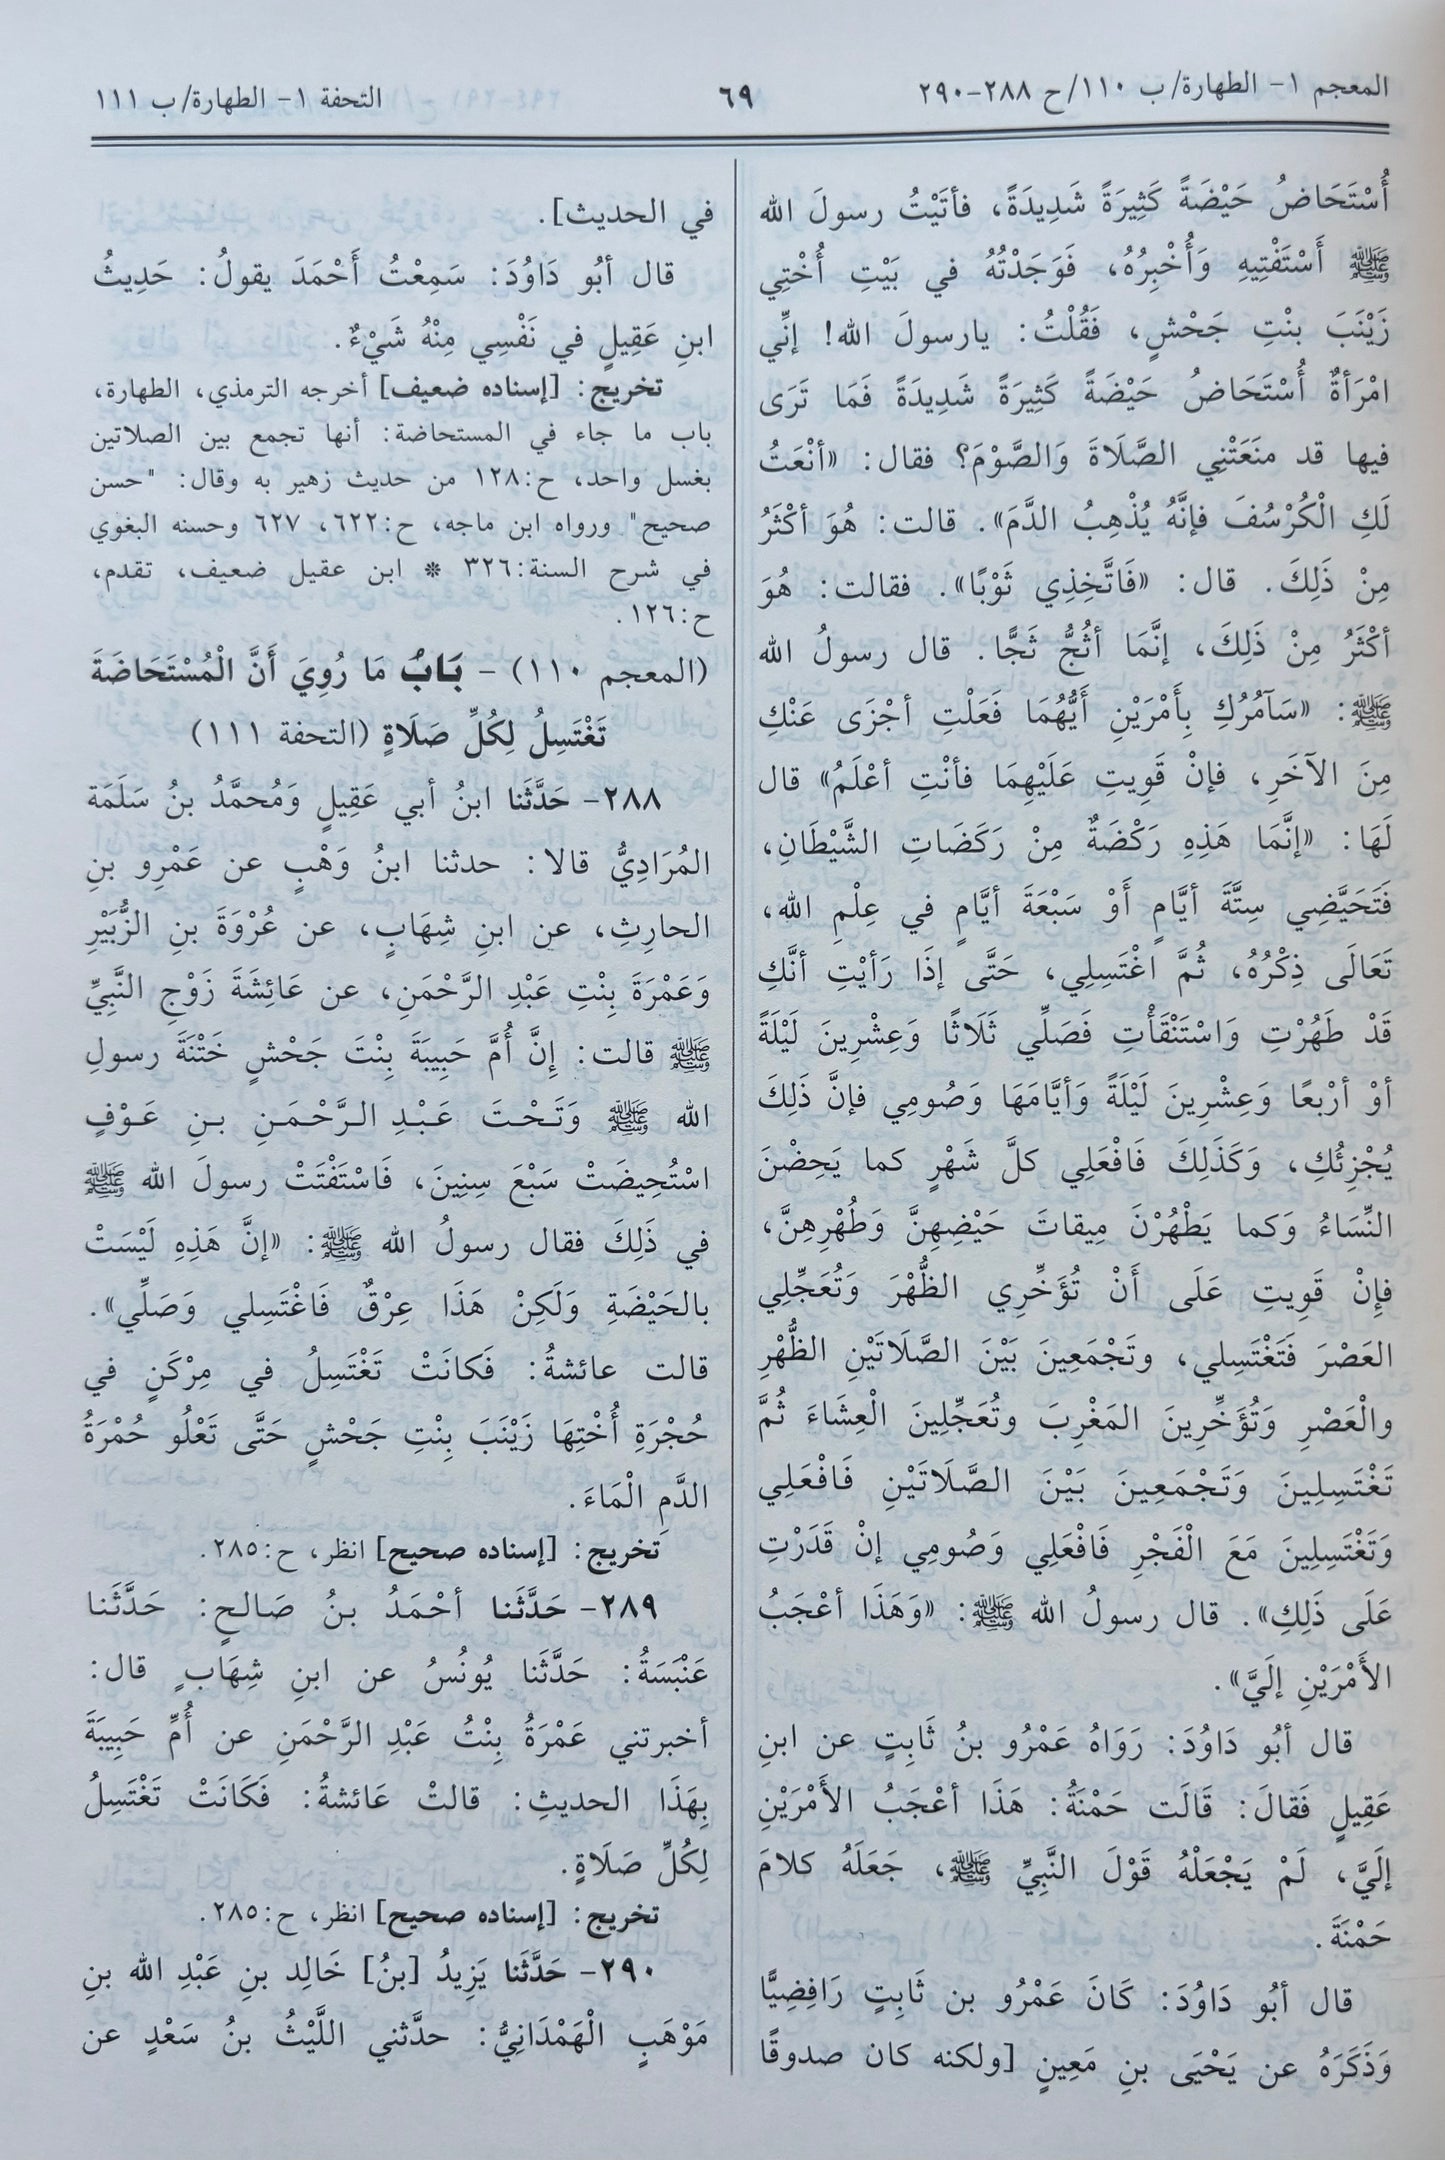 المعجم ١- الطهارة/ ب ١١٠/ح ٢٨٨-٢٩٠
٦٩
التحفة ١- الطهارة/ ب ١١١
أُسْتَحَاضُ حَيْضَةً كَثِيرَةً شَدِيدَةً، فأتَيْتُ رسولَ الله
ﷺ أَسْتَفْتِيهِ وَأُخْبِرُهُ، فَوَجَدْتُهُ في بَيْتِ أُخْتِي
زَيْنَبَ بنْتِ جَحْشٍ، فَقُلْتُ: يارسولَ الله! إنِّي
امْرَأةٌ أُسْتَحَاضُ حَيْضَةً كَثِيرَةً شَدِيدَةً فَمَا تَرَى
فيها قد منَعَتْنِي الصَّلَاةَ وَالصَّوْمَ؟ فقال: «أنْعَتُ
لَكِ الْكُرْسُفَ فإنَّهُ يُذْهِبُ الدَّمَ». قالت: هُوَ أكْثَرُ
مِنْ ذَلِكَ. قال: «فَاتَّخِذِي ثَوْبًا». فقالت: هُوَ
أكْثَرُ مِنْ ذَلِكَ، إنَّمَا أثُجُّ ثَجًّا. قال رسولُ الله
ﷺ: «سَآمُرُكِ بِأَمْرَيْنِ أَيُّهُمَا فَعَلْتِ أجْزَى عَنْكِ
مِنَ الآخَرِ، فإنْ قَوِيتِ عَلَيْهِمَا فأنْتِ أعْلَمُ» قال
لَهَا: «إنَّمَا هَذِهِ رَكْضَةٌ مِنْ رَكَضَاتِ الشَّيْطَانِ،
فَتَحَيَّضِي سِتَّةَ أيَّامٍ أَوْ سَبْعَةَ أيَّامٍ في عِلْمِ الله،
تَعَالَى ذِكْرُهُ، ثُمَّ اغْتَسِلِي، حَتَّى إذَا رَأيْتِ أنَّكِ
قَدْ طَهُرْتِ وَاسْتَنْقَأْتِ فَصَلِّي ثَلَاثًا وَعِشْرِينَ لَيْلَةً
أوْ أرْبعًا وَعِشْرِينَ لَيْلَةً وَأيَّامَهَا وَصُومِي فإنَّ ذَلِكَ
يُجْزِئُكِ، وَكَذَلِكَ فَافْعَلِي كلَّ شَهْرٍ كما يَحِضْنَ
النِّسَاءُ وَكما يَطْهُرْنَ مِيقاتَ حَيْضِهِنَّ وَطُهْرِهِنَّ،
فإنْ قَوِيتِ عَلَى أَنْ تُؤَخِّرِي الظُّهْرَ وَتُعَجِّلِي
العَصْرَ فَتَغْتَسِلي، وتَجْمَعِينَ بَيْنَ الصَّلَاتَيْنِ الظُّهْرِ
والْعَصْرِ وَتُؤَخِّرِينَ المَغْرِبَ وتُعَجِّلِينَ الْعِشَاءَ ثُمَّ
تَغْتَسِلِينَ وَتَجْمَعِينَ بَيْنَ الصَّلَاتَيْنِ فَافْعَلِي
وَتَغْتَسِلِينَ مَعَ الْفَجْرِ فَافْعَلِي وَصُومِي إنْ قَدَرْتِ
عَلَى ذَلِكِ». قال رسولُ الله ﷺ: «وَهَذَا أعْجَبُ
الأَمْرَيْنِ إلَيَّ».
قال أبُو دَاوُدَ: رَوَاهُ عَمْرُو بنُ ثَابِتٍ عن ابنِ
عَقِيلٍ فَقالَ: قَالَت حَمْنَةُ: هَذَا أعْجَبُ الأَمْرَيْنِ
إلَيَّ، لَمْ يَجْعَلْهُ قَوْلَ النَّبِيِّ ﷺ، جَعَلَهُ كلامَ
حَمْنَةَ.
قال أبُو دَاوُدَ: كَانَ عَمْرُو بن ثَابِتٍ رَافِضِيًّا
وَذَكَرَهُ عن يَحْيَى بنِ مَعِينٍ [ولكنه كان صدوقًا
في الحديث].
قال أبُو دَاوُدَ: سَمِعْتُ أَحْمَدَ يقولُ: حَدِيثُ
ابنِ عَقِيلٍ في نَفْسِي مِنْهُ شَيْءٌ.
تخريج: [إسناده ضعيف] أخرجه الترمذي، الطهارة،
باب ما جاء في المستحاضة: أنها تجمع بين الصلاتين
بغسل واحد، ح:١٢٨ من حديث زهير به وقال: "حسن
صحيح" ورواه ابن ماجه، ح:٦٢٢، ٦٢٧ وحسنه البغوي
في شرح السنة:٣٢٦ * ابن عقيل ضعيف، تقدم،
ح:١٢٦.
(المعجم ١١٠) - بَابُ مَا رُوِيَ أَنَّ الْمُسْتَحَاضَةَ
تَغْتَسِلُ لِكُلِّ صَلَاةٍ (التحفة ١١١)
٢٨٨- حَدَّثَنا ابنُ أبي عَقِيلٍ وَمُحمَّدُ بنُ سَلَمَة
المُرَادِيُّ قالا: حدثنا ابنُ وَهْبٍ عن عَمْرِو بنِ
الحارِثِ، عن ابنِ شِهَابٍ، عن عُرْوَةَ بنِ الزُّبَيْرِ
وَعَمْرَةَ بِنْتِ عَبْدِ الرَّحْمَنِ، عن عَائِشَةَ زَوْجِ النَّبِيِّ
ﷺ قالت: إِنَّ أُمَّ حَبِيبَةَ بِنْتَ جَحْشٍ خَتْنَةَ رسولِ
الله ﷺ وَتَحْتَ عَبْدِ الرَّحْمَنِ بنِ عَوْفٍ
اسْتُحِيضَتْ سَبْعَ سِنِينَ، فَاسْتَفْتَتْ رسولَ الله ﷺ
في ذَلِكَ فقال رسولُ الله ﷺ: «إنَّ هَذِهِ لَيْسَتْ
بالحَيْضَةِ وَلَكِنْ هَذَا عِرْقٌ فَاغْتَسِلي وَصَلِّي».
قالت عائشةُ: فَكانَتْ تَغْتَسِلُ في مِرْكَنٍ في
حُجْرَةِ أُخْتِهَا زَيْنَبَ بِنْتِ جَحْشٍ حَتَّى تَعْلُو حُمْرَةُ
الدَّمِ الْمَاءَ.
تخريج: [إسناده صحيح] انظر، ح:٢٨٥.
٢٨٩- حَدَّثَنا أحْمَدُ بنُ صَالحٍ: حَدَّثَنا
عَنْبَسَةُ: حَدَّثَنا يُونُسُ عن ابنِ شِهَابٍ قال:
أخبرتني عَمْرَةُ بِنْتُ عَبْدِ الرَّحْمَنِ عن أُمِّ حَبِيبَةَ
بِهَذَا الحديثِ: قالتْ عَائشةُ: فَكَانَتْ تَغْتَسِلُ
لِكُلِّ صَلَاةٍ.
تخريج: [إسناده صحيح] انظر، ح:٢٨٥.
٢٩٠- حَدَّثَنا يَزِيدُ [بنُ] خَالِد بنِ عَبْدِ الله بنِ
مَوْهَبٍ الْهَمْدَانِيُّ: حدَّثني اللَّيْثُ بنُ سَعْدٍ عن